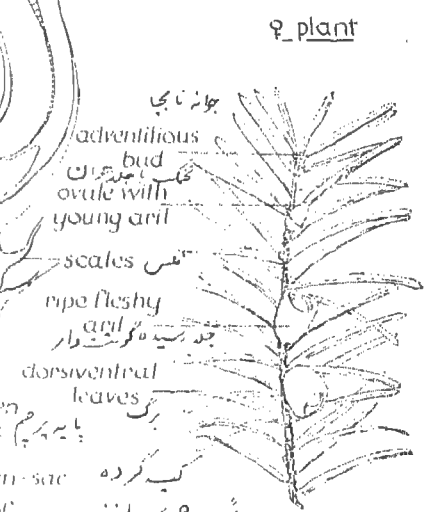 ♀ plant
جوانه نابجا
adventitious
bud
تخمک
ovule with
young aril
scales فلس
ripe fleshy
aril
رسیده گوشت‌دار
dorsiventral
leaves
برگ
پایه پرچم
کیسه گرده